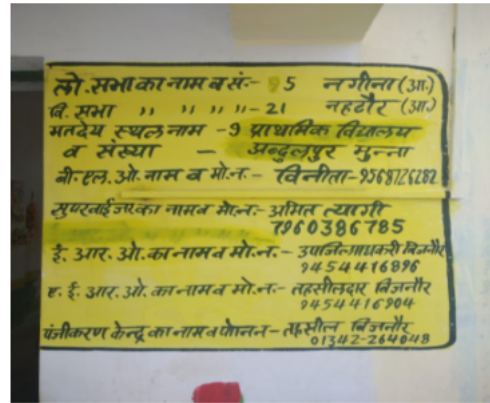 लो. सभा का नाम व सं:- 5 नगीना (आ.)
वि. सभा ,, ,, ,, ,,- 21 नहटौर (आ.)
मतदेय स्थल नाम - 9 प्राथमिक विद्यालय
व संख्या - अब्दुलपुर मुन्ना
बी.एल.ओ. नाम व मो.न:- विनीता-9568726282
सुपरवाईजर का नाम व मो.न:- अमित त्यागी
7960386785
ई. आर. ओ. का नाम व मो.न:- उपजिलाधिकारी बिजनौर
9454416896
ए. ई. आर. ओ. का नाम व मो.न:- तहसीलदार बिजनौर
9454416904
पंजीकरण केन्द्र का नाम व फोन न - तहसील बिजनौर
01342-264048